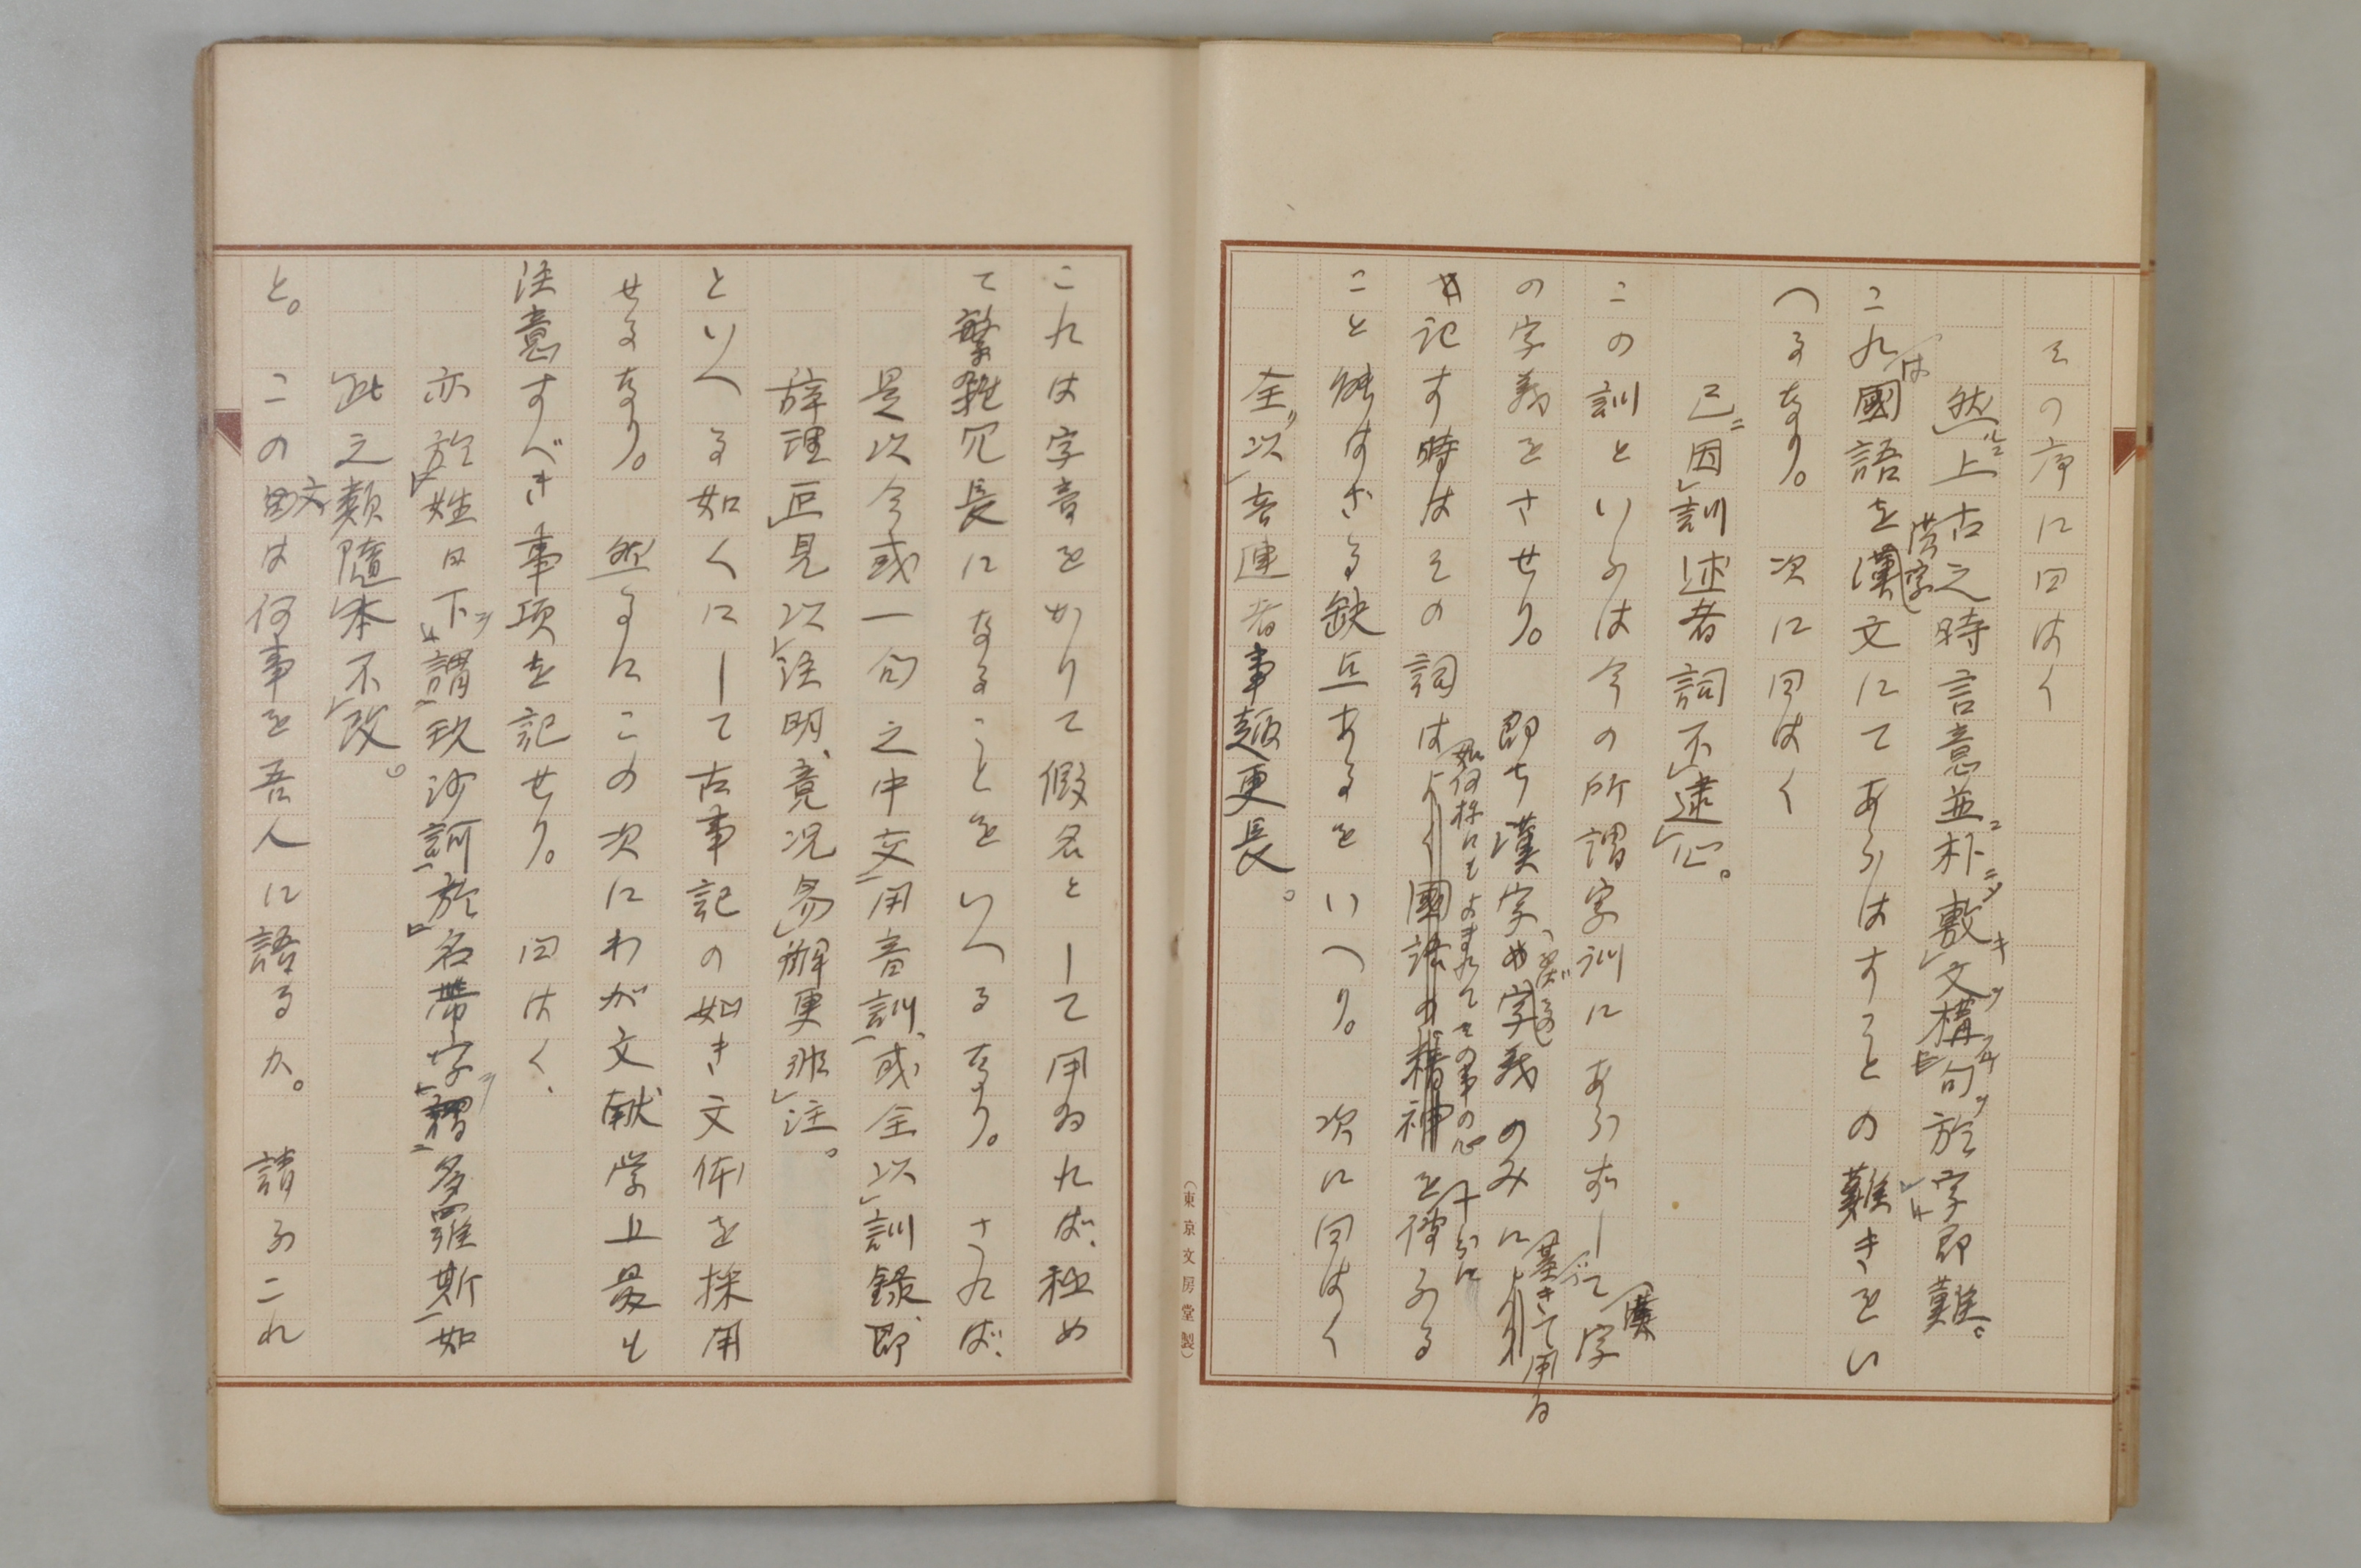 その序に曰はく
然上古之時言意並朴敷文構句於字即難。
これは國語を漢字文にてあらはすことの難きをい
へるなり。 次に曰はく
已因訓述者詞不逮心。
この訓といふは今の所謂字訓にあらずして漢字
の字義をさせり。 即ち漢字の字義のみに基きて用ゐ
記す時はその詞は如何様にもよまれてその事の心を十分に傳ふる
こと能はざる缺点あるをいへり。 次に曰はく
全以音連者事趣更長。
(東京文房堂製)
これは字音をかりて假名として用ゐれば、極め
て繁雜冗長になることをいへるなり。 されば、
是以今或一句之中交用音訓、或全以訓録、即
辞理叵見以注明、意况易解更非注。
といへる如くにして古事記の如き文体を採用
せるなり。 然るにこの次にわが文献学上最も
注意すべき事項を記せり。 曰はく、
亦於姓日下謂玖沙訶於名帯字謂多羅斯如
此之類隨本不改。
と。 この文は何事を吾人に語るか。 請ふこれ